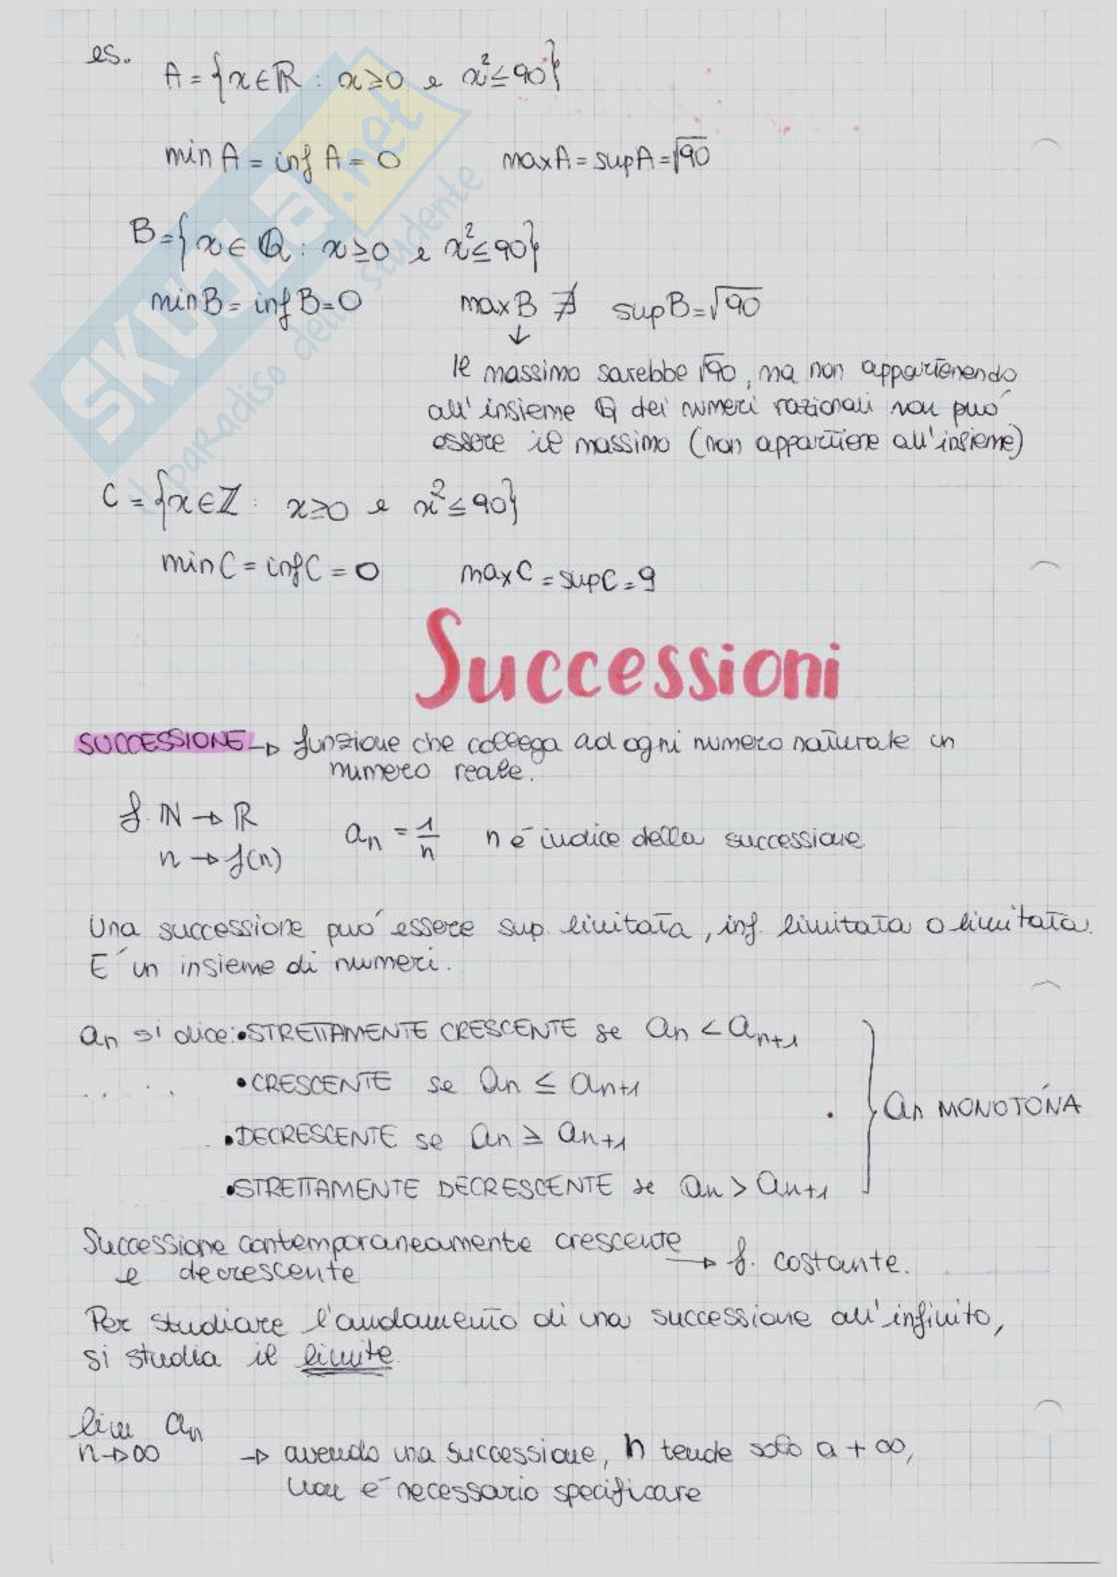 es.
A = {x∈ℝ : x≥0 e x²≤90}
min A = inf A = 0 max A = sup A = √90
B = {x∈ℚ : x≥0 e x²≤90}
min B = inf B = 0 max B ∄ sup B = √90
↓
Il massimo sarebbe √90, ma non appartenendo
all'insieme ℚ dei numeri razionali non può
essere il massimo (non appartiene all'insieme)
C = {x∈ℤ : x≥0 e x²≤90}
min C = inf C = 0 max C = sup C = 9
Successioni
SUCCESSIONE → funzione che collega ad ogni numero naturale un
numero reale.
f: ℕ → ℝ
n → f(n)
aₙ = 1/n n è indice della successione
Una successione può essere sup. limitata, inf. limitata o limitata.
E' un insieme di numeri.
aₙ si dice: • STRETTAMENTE CRESCENTE se aₙ < aₙ₊₁
• CRESCENTE se aₙ ≤ aₙ₊₁
• DECRESCENTE se aₙ ≥ aₙ₊₁
• STRETTAMENTE DECRESCENTE se aₙ > aₙ₊₁
} aₙ MONOTÓNA
Successione contemporaneamente crescente
e decrescente → f. costante.
Per studiare l'andamento di una successione all'infinito,
si studia il limite.
lim aₙ
n→∞ → avendo una successione, n tende solo a +∞,
non è necessario specificare
SKUOLA.net
il paradiso dello studente